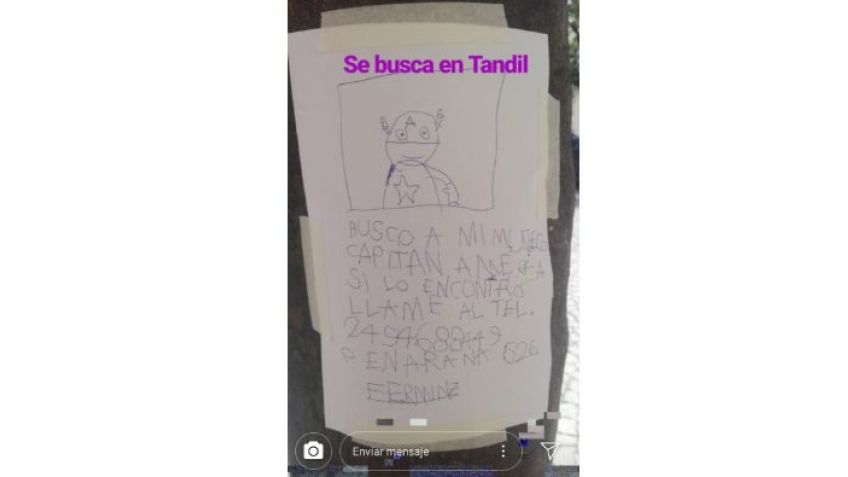 Se busca en Tandil
A
BUSCO A MI MUÑECO
CAPITAN AMERICA
SI LO ENCONTRAS
LLAME AL TEL.
O EN ARANA 626
FERMIN
Enviar mensaje